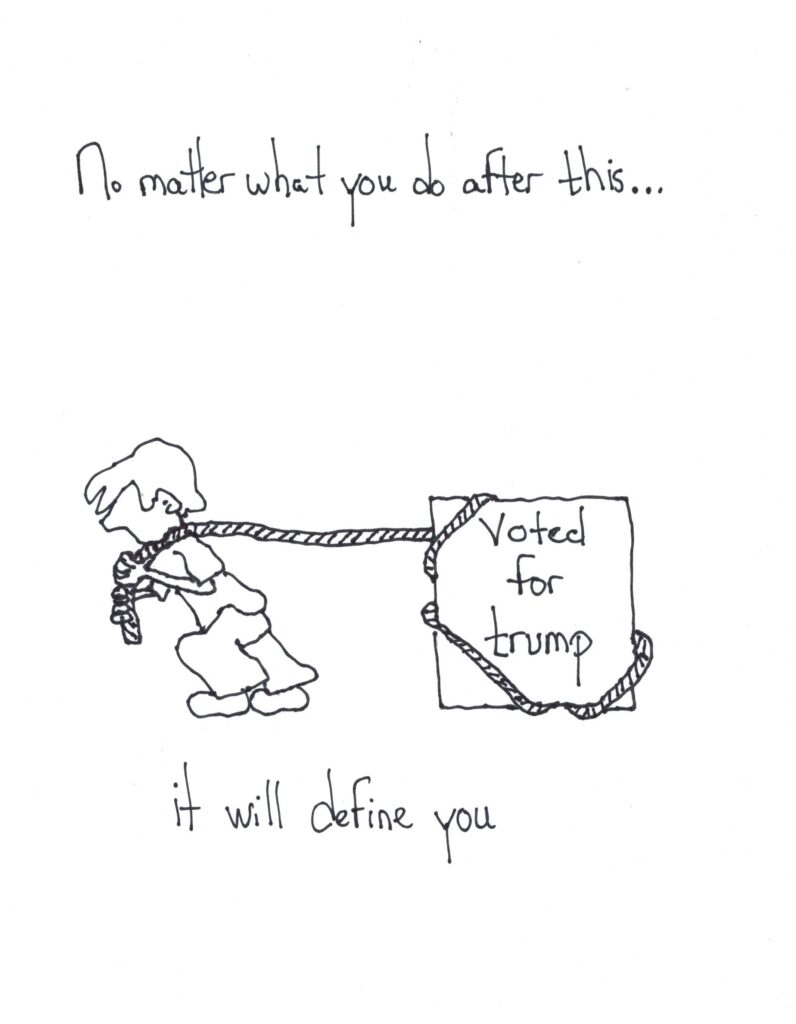 No matter what you do after this...
Voted
for
trump
it will define you